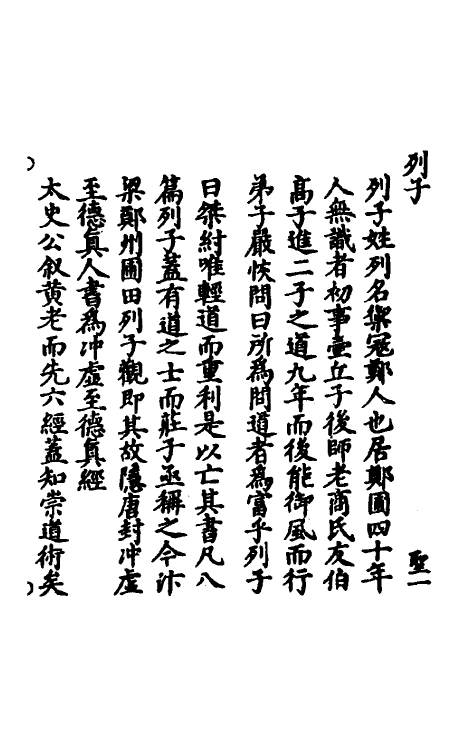 列子
聖一
列子姓列名禦寇鄭人也居鄭圃四十年
人無識者初事壺丘子後師老商氏友伯
高子進二子之道九年而後能御風而行
弟子嚴恢問曰所為問道者為富乎列子
曰桀紂唯輕道而重利是以亡其書凡八
篇列子蓋有道之士而莊子亟稱之今汴
梁鄭州圃田列子觀即其故隱唐封沖虛
至德真人書為沖虛至德真經
太史公叙黃老而先六經蓋知崇道術矣